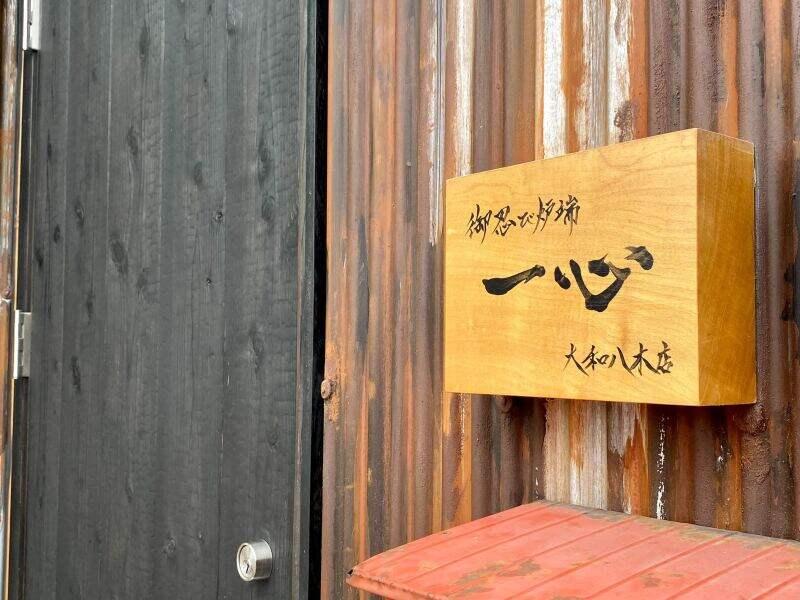 御忍び炉端
一心
大和八木店